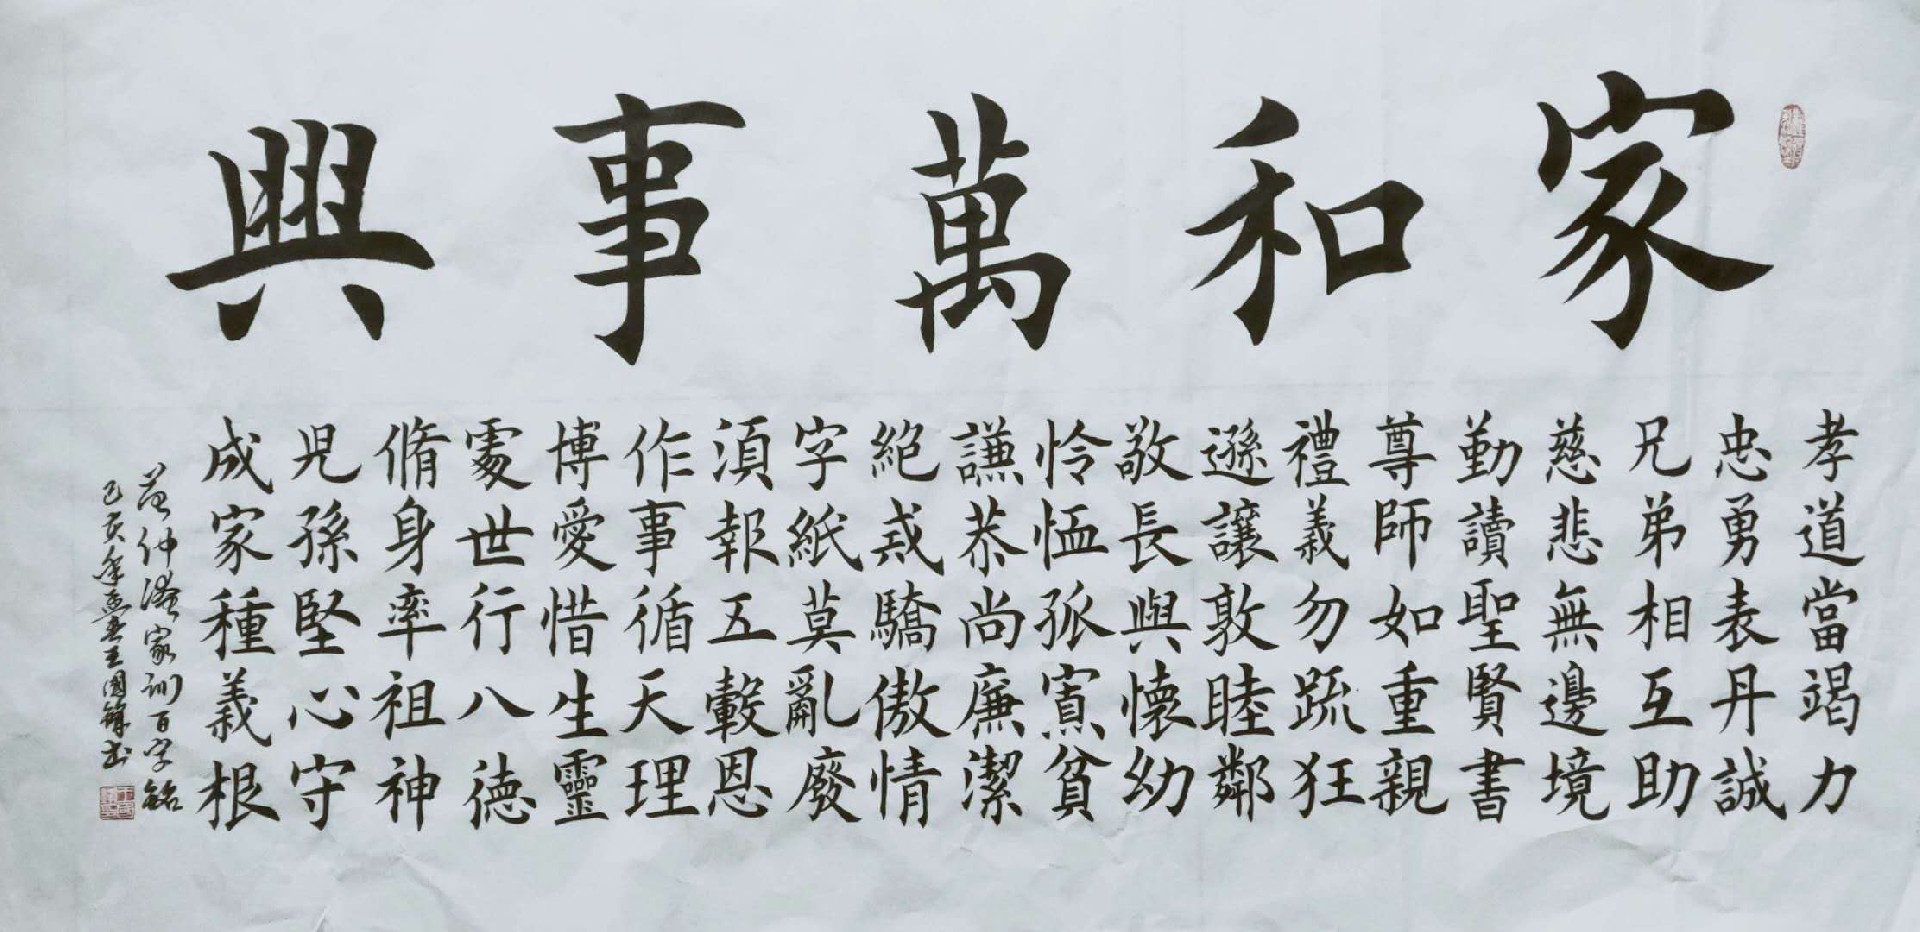 家和萬事興
孝道當竭力
忠勇表丹誠
兄弟相互助
慈悲無邊境
勤讀聖賢書
尊師如重親
禮義勿疏狂
遜讓敦睦鄰
敬長與懷幼
憐恤孤寡貧
謙恭尚廉潔
絕戒驕傲情
字紙莫亂廢
須報五穀恩
作事循天理
博愛惜生靈
處世行八德
脩身率祖神
兒孫堅心守
成家種義根
范仲淹家訓百字銘
己亥年